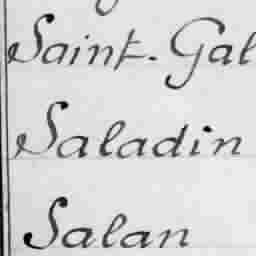 Saint-Gal
Saladin
Salan